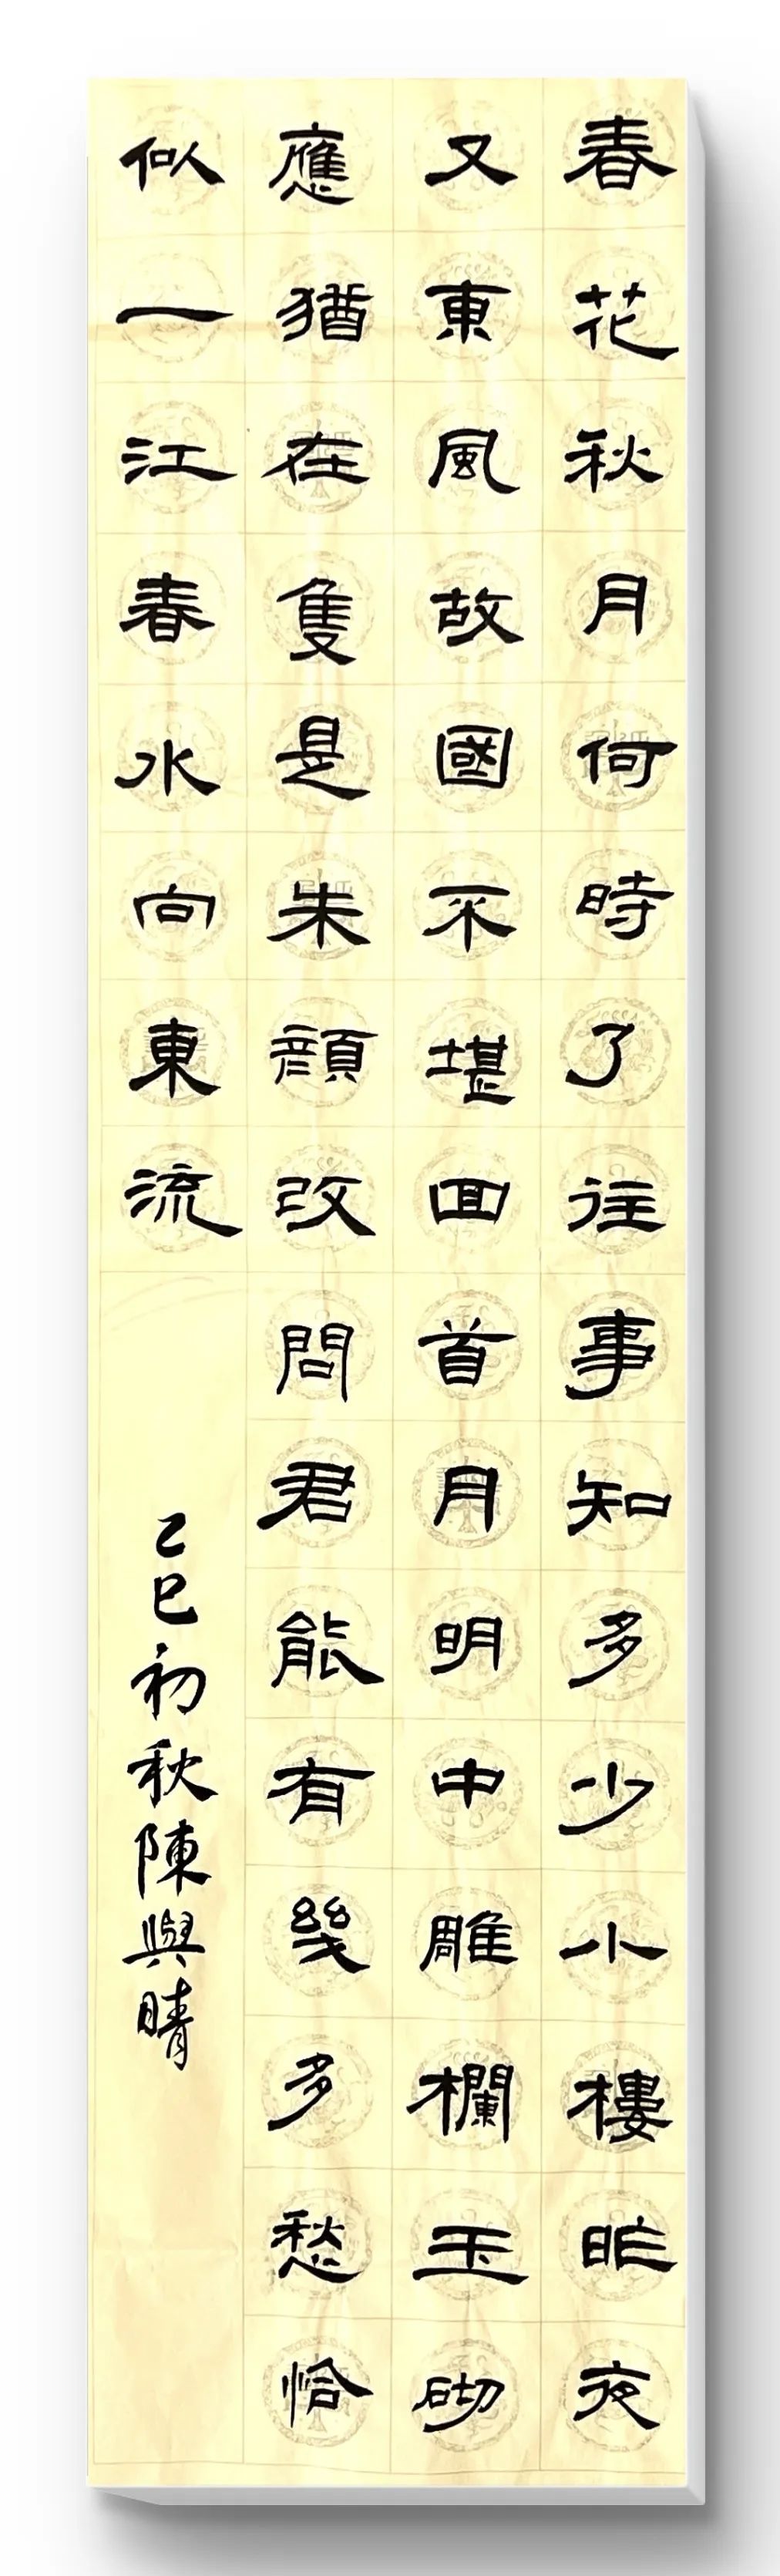 春花秋月何時了往事知多少小樓昨夜
又東風故國不堪回首月明中雕欄玉砌
應猶在隻是朱顔改問君能有幾多愁恰
似一江春水向東流
乙巳初秋陳與晴